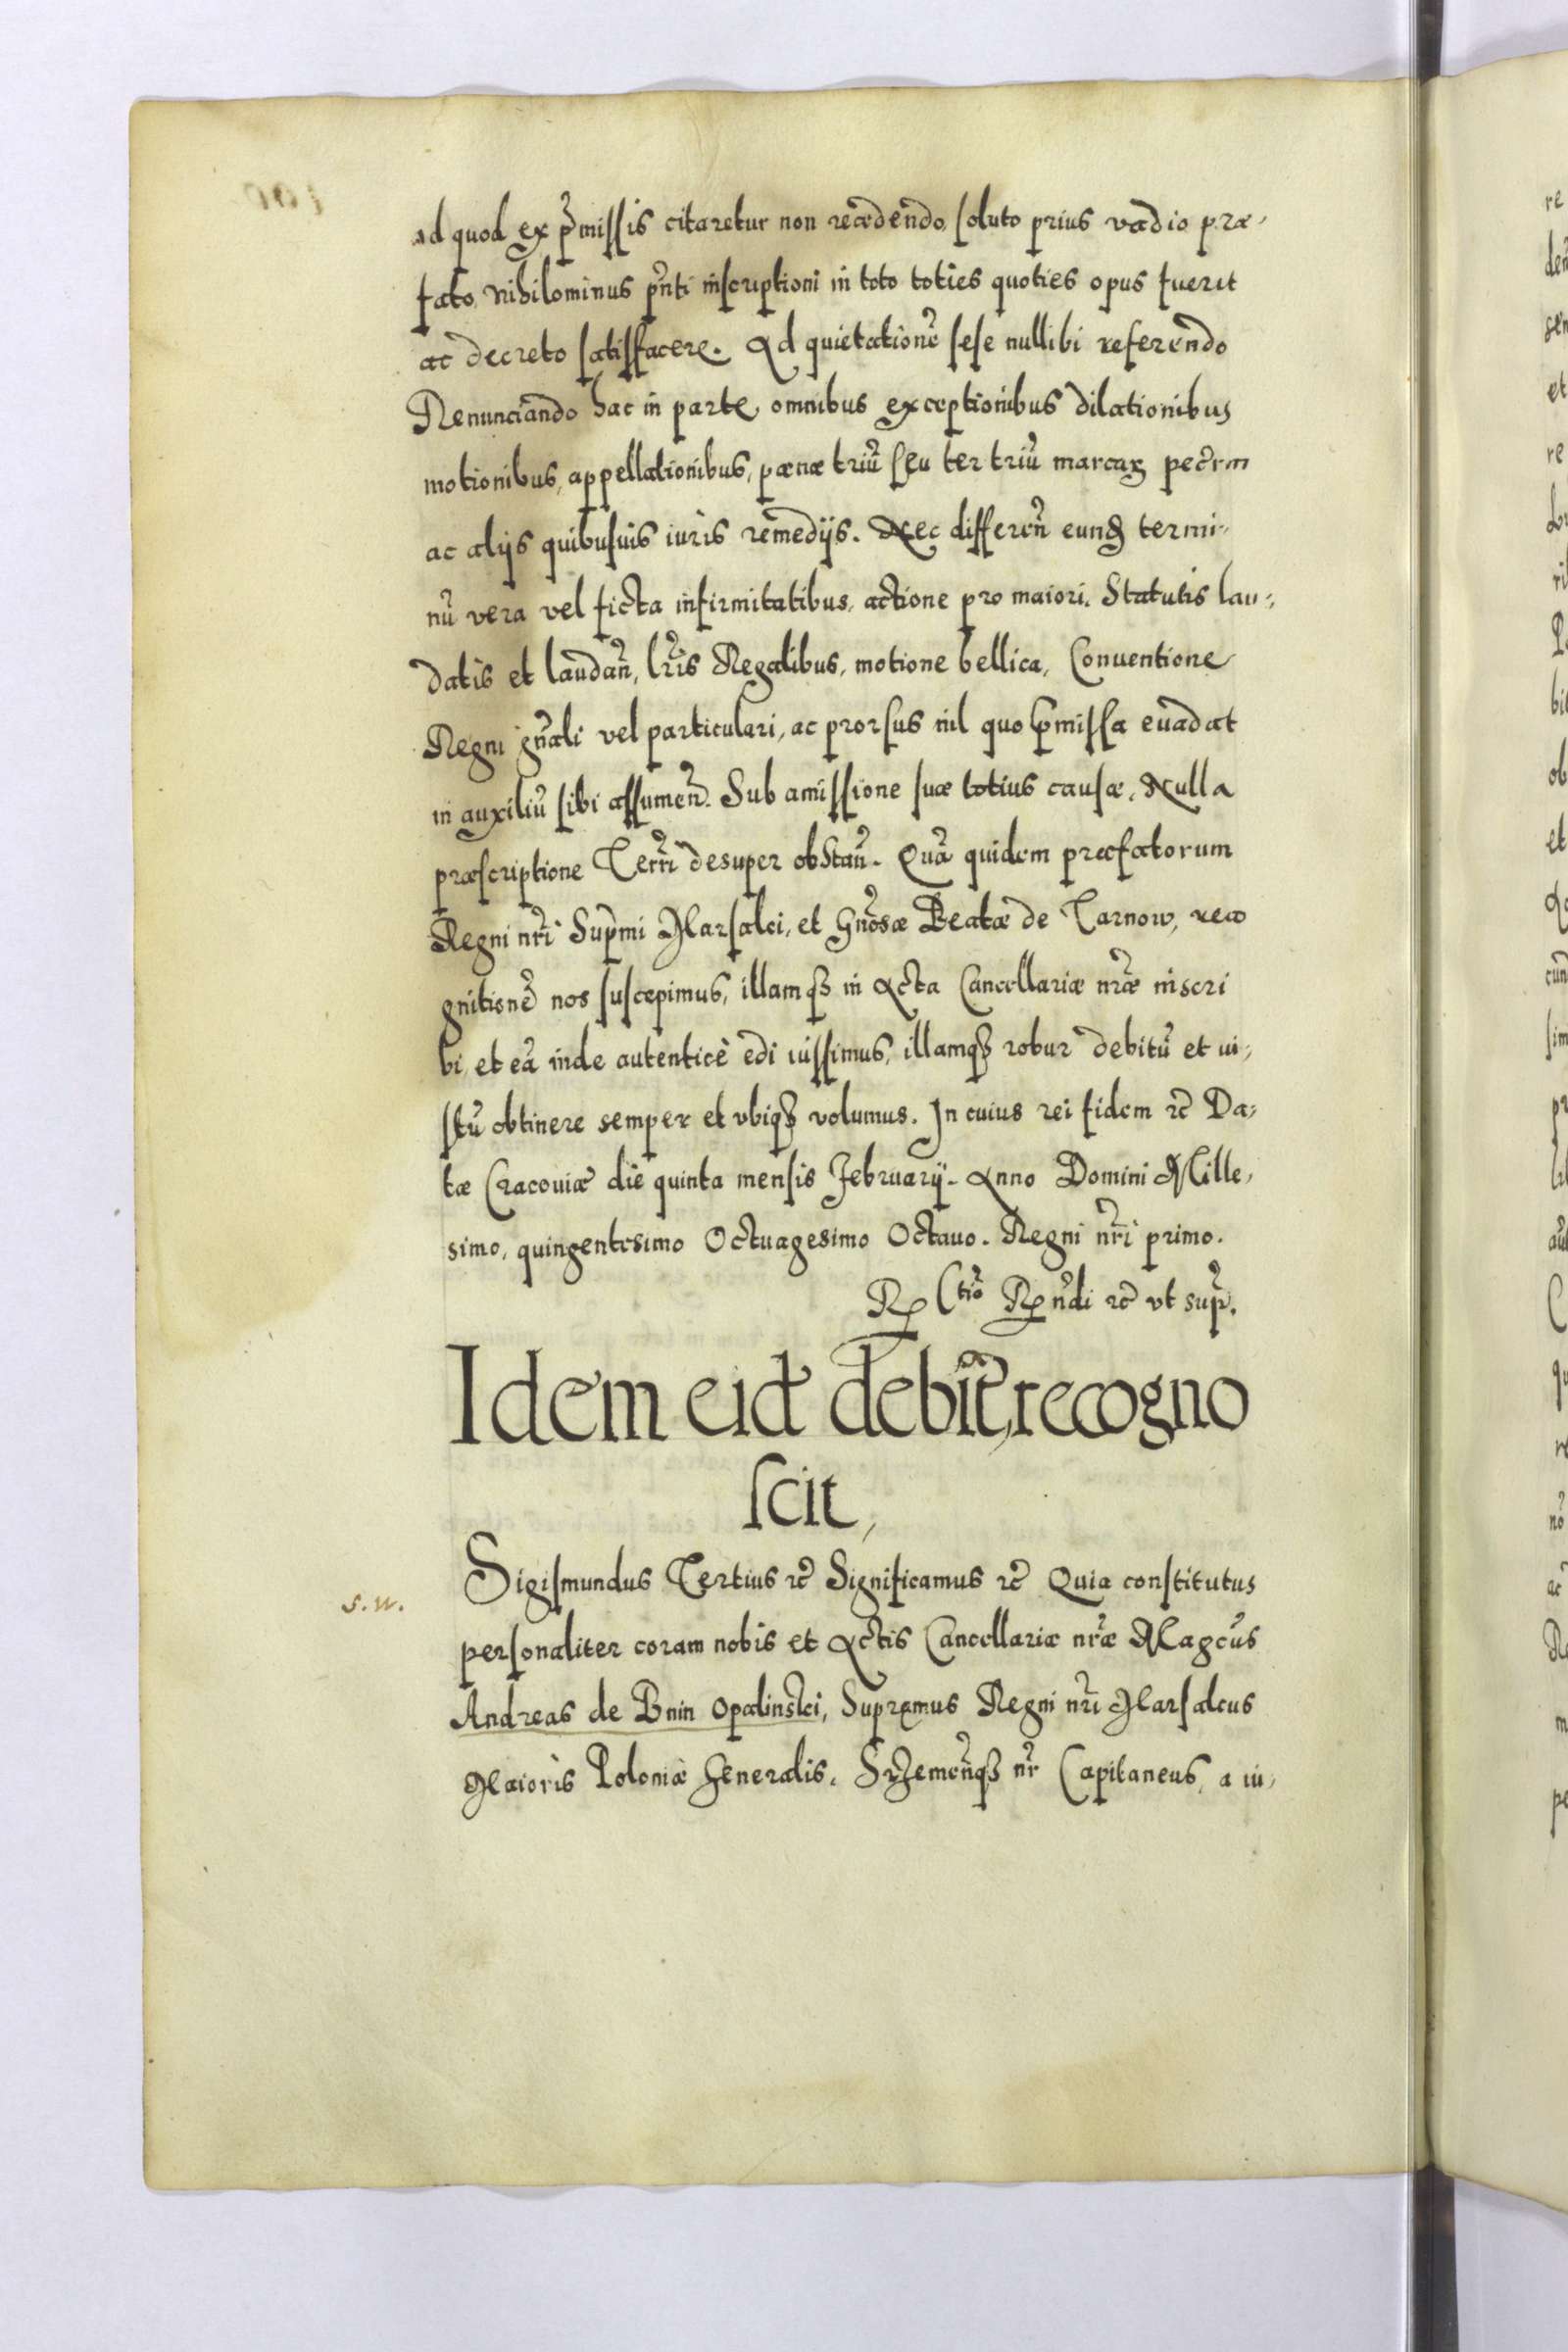 ad quod ex p̃missis citaretur non recedendo, soluto prius vadio præ-
fato, Nihilominus p̃nti inscriptioni in toto toties quoties opus fuerit
ac decreto satisfacere. Ad quietationẽ sese nullibi referendo
Renunciando hac in parte omnibus exceptionibus dilationibus
motionibus, appellationibus, pœnæ triũ seu ter triũ marcaꝝ
ac alijs quibusuis iuris remedijs. Nec differeñ eund termi-
nũ vera vel ficta infirmitatibus, actione pro maiori, Statutis lau-
datis et laudañ, lr̃is Regalibus, motione bellica, Conuentione
Regni gñali vel particulari, ac prorsus nil quo p̃missa euadat
in auxiliũ sibi assumeñ. Sub amissione suæ totius causæ, Nulla
præscriptione Terr̃i desuper obstañ. Quã quidem præfatorum
Regni nr̃i Sup̃mi Marsalci, et Gñosæ Beatæ de Tarnow, reco
gnitionẽ nos suscepimus, illamqꝫ in Acta Cancellariæ nr̃æ inscri
bi, et eã inde autenticè edi iussimus, illamqꝫ robur debitũ et iu-
stũ obtinere semper et vbiqꝫ volumus. In cuius rei fidem ꝛc̃ Da-
tæ Cracouiæ die quinta mensis February. Anno Domini Mille-
simo, quingentesimo Octuagesimo Octauo. Regni nr̃i primo.
Rꝑ Ctio R̃ñdi ꝛc̃ vt sup̃.
Idem eid debite, recogno
scit,
Sigismundus Tertius ꝛc̃ Significamus ꝛc̃ Quia constitutus
s.w.
personaliter coram nobis et Actis Cancellariæ nr̃æ Magc̃us
Andreas de Bnin Opalinski, Supremus Regni nr̃i Marsalcus
Maioris Poloniæ Generalis, Srzemeñqꝫ nr̃ Capitaneus, a iu-